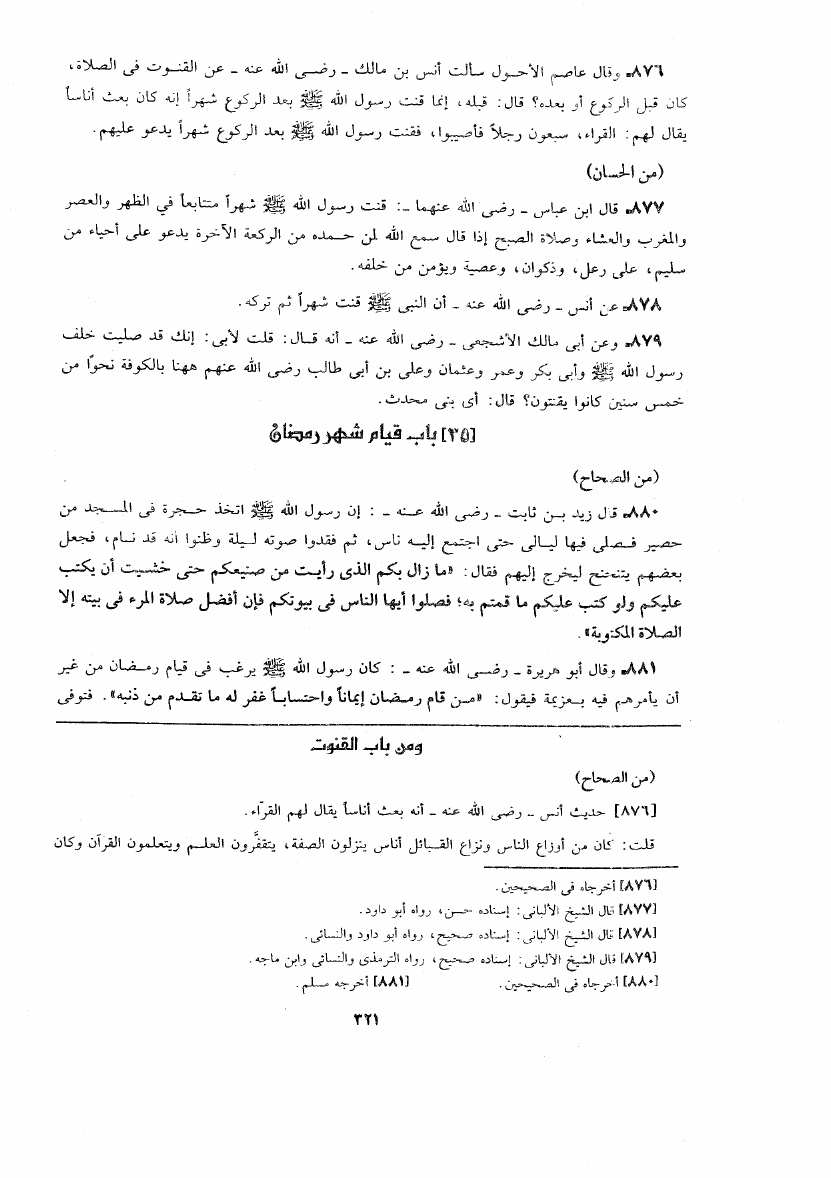 ٨٧٦ـ وقال عاصم الأحـول سألت أنس بن مالك ـ رضـى الله عنه ـ عن القنـوت فى الصلاة،
كان قبل الركوع أو بعده؟ قال: قبله، إنما قنت رسول الله ﷺ بعد الركوع شهراً إنه كان بعث أناساً
يقال لهم: القراء، سبعون رجلاً فأصيبوا، فقنت رسول الله ﷺ بعد الركوع شهراً يدعو عليهم.
(من الحسان)
٨٧٧ـ قال ابن عباس ـ رضى الله عنهما ـ: قنت رسول الله ﷺ شهراً متتابعاً في الظهر والعصر
والمغرب والعشاء وصلاة الصبح إذا قال سمع الله لمن حـمده من الركعة الآخرة يدعو على أحياء من
سليم، على رعل، وذكوان، وعصية ويؤمن من خلفه.
٨٧٨ـ عن أنس ـ رضى الله عنه ـ أن النبى ﷺ قنت شهراً ثم تركه.
٨٧٩ـ وعن أبى مالك الأشجعى ـ رضى الله عنه ـ أنه قـال: قلت لأبى: إنك قد صليت خلف
رسول الله ﷺ وأبى بكر وعمر وعثمان وعلى بن أبى طالب رضى الله عنهم ههنا بالكوفة نحوًا من
خمس سنين كانوا يقنتون؟ قال: أى بنى محدث.
[٣٥] باب قيام شهر رمضان
(من الصحاح)
٨٨٠ـ قال زيد بـن ثابت ـ رضى الله عـنه ـ : إن رسول الله ﷺ اتخذ حـجرة فى المسـجد من
حصير فـصلى فيها ليـالى حتى اجتمع إليـه ناس، ثم فقدوا صوته ليلة وظنوا أنه قد نـام، فجعل
بعضهم يتنحنح ليخرج إليهم فقال: «ما زال بكم الذى رأيـت من صنيعكم حتى خشـيت أن يكتب
عليكم ولو كتب عليكم ما قمتم به؛ فصلوا أيها الناس فى بيوتكم فإن أفضل صلاة المرء فى بيته إلا
الصلاة المكتوبة».
٨٨١ـ وقال أبو هريرة ـ رضـى الله عنه ـ : كان رسول الله ﷺ يرغب فى قيام رمـضان من غير
أن يأمرهـم فيه بـعزيمة فيقول: «مـن قام رمـضان إيماناً واحتسابـاً غفر له ما تقـدم من ذنبه». فتوفى
ومن باب القنوت
(من الصحاح)
[٨٧٦] حديث أنس ـ رضى الله عنه ـ أنه بعث أناساً يقال لهم القرّاء.
قلت: كان من أوزاع الناس ونزاع القـبائل أناس ينزلون الصفة، يتقفَّرون العلـم ويتعلمون القرآن وكان
[٨٧٦] أخرجاه فى الصحيحين.
[٨٧٧] قال الشيخ الألبانى: إسناده حسن، رواه أبو داود.
[٨٧٨] قال الشيخ الألبانى: إسناده صحيح، رواه أبو داود والنسائى.
[٨٧٩] قال الشيخ الألبانى: إسناده صحيح، رواه الترمذى والنسائى وابن ماجه.
[٨٨٠] أخرجاه فى الصحيحين. [٨٨١] أخرجه مسلم.
٣٢١